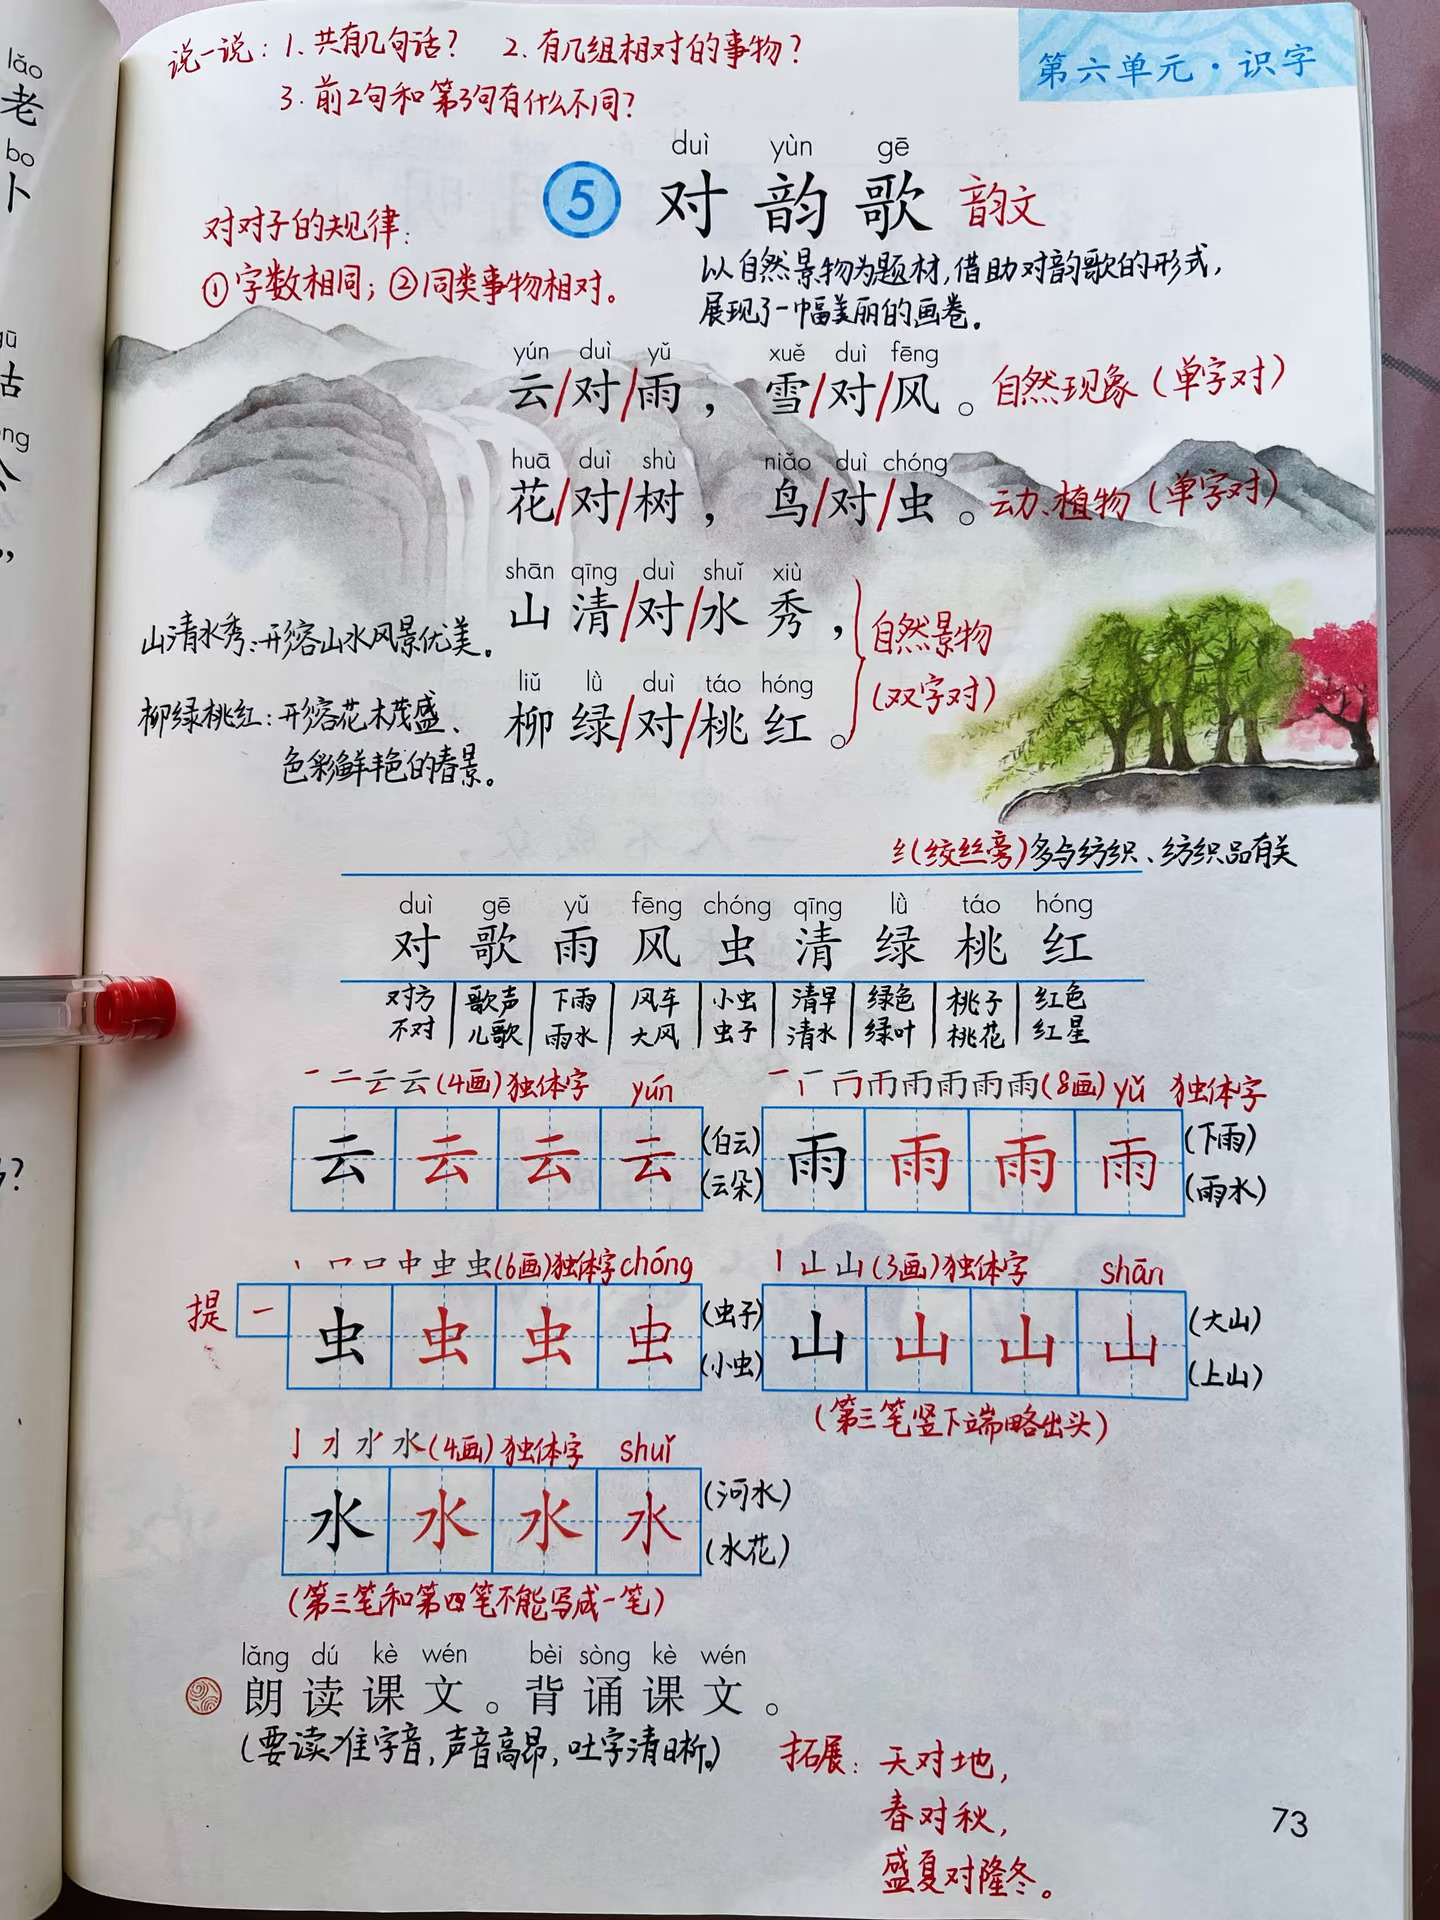 lǎo
老
bo
卜
gū
说一说：1.共有几句话？ 2.有几组相对的事物？
3.前2句和第3句有什么不同？
第六单元·识字
duì yùn gē
5 对韵歌 韵文
对对子的规律：
①字数相同；②同类事物相对。
以自然景物为题材，借助对韵歌的形式，
展现了一幅美丽的画卷。
yún duì yǔ xuě duì fēng
云/对/雨，雪/对/风。自然现象（单字对）
huā duì shù niǎo duì chóng
花/对/树，鸟/对/虫。动、植物（单字对）
shān qīng duì shuǐ xiù
山清/对/水秀，
山清水秀：形容山水风景优美。
自然景物
（双字对）
liǔ lǜ duì táo hóng
柳绿/对/桃红。
柳绿桃红：形容花木茂盛、
色彩鲜艳的春景。
纟(绞丝旁)多与纺织、纺织品有关
duì gē yǔ fēng chóng qīng lǜ táo hóng
对 歌 雨 风 虫 清 绿 桃 红
对方 歌声 下雨 风车 小虫 清早 绿色 桃子 红色
不对 儿歌 雨水 大风 虫子 清水 绿叶 桃花 红星
(4画)独体字 yún
云 云 云 云
(白云)
(云朵)
(8画) yǔ 独体字
雨 雨 雨 雨
(下雨)
(雨水)
(6画)独体字 chóng
提 ㇀ 虫 虫 虫 虫
(虫子)
(小虫)
(3画)独体字 shān
山 山 山 山
(大山)
(上山)
(第三笔竖下端略出头)
(4画)独体字 shuǐ
水 水 水 水
(河水)
(水花)
(第三笔和第四笔不能写成一笔)
lǎng dú kè wén bèi sòng kè wén
朗读课文。背诵课文。
(要读准字音，声音高昂，吐字清晰。)
拓展：天对地，
春对秋，
盛夏对隆冬。
73